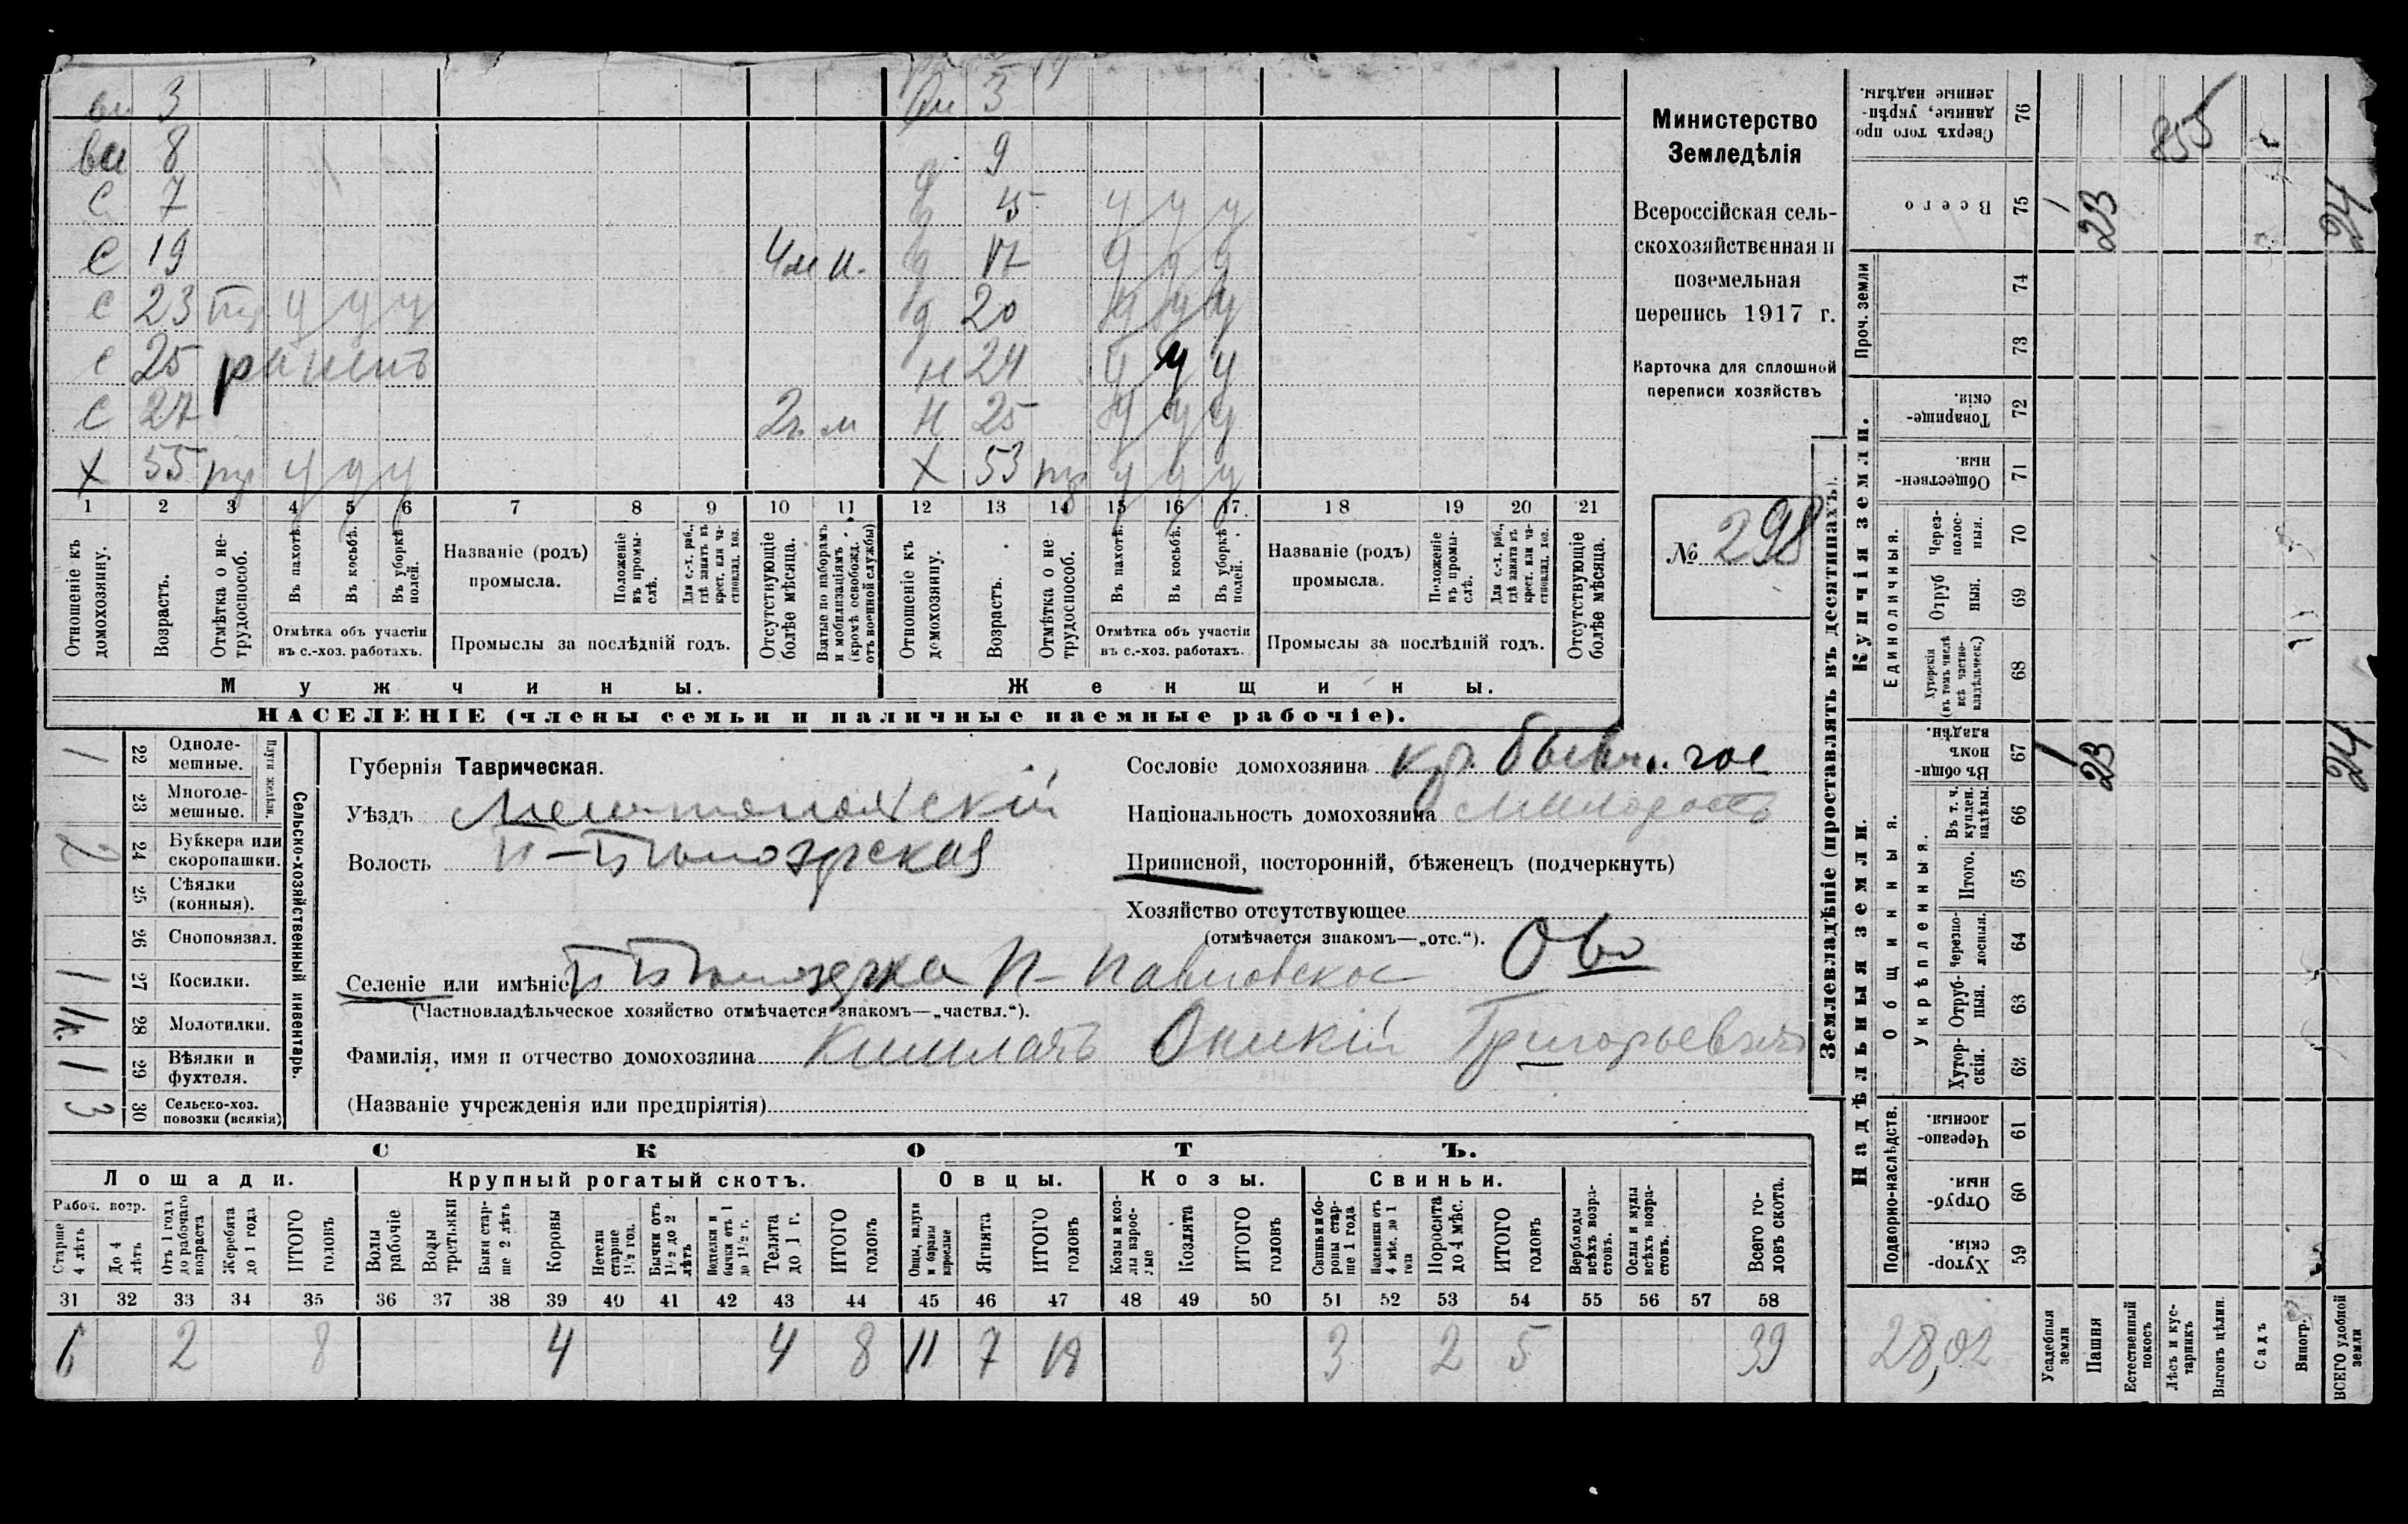 вн 3
вн 8
с 7
с 19 4м н.
с 23 у у у
с 25 раненъ
с 27 2г. м
х 55 у у у
вн 3
д 9
д 15 у у у
д 17 у у у
д 20 у у у
н 24 у у у
н 25 у у у
х 53 у у у
1 2 3 4 5 6 7 8 9 10 11 12 13 14 15 16 17 18 19 20 21
Отношеніе къ домохозяину.
Возрастъ.
Отмѣтка о нетрудоспособ.
Въ пахотѣ.
Въ косьбѣ.
Въ уборкѣ полей.
Отмѣтка объ участіи въ с.-хоз. работахъ.
Названіе (родъ) промысла.
Положеніе въ промыслѣ.
Для с.-х. раб., гдѣ занятъ въ крест. или частновлад. хоз.
Промыслы за послѣдній годъ.
Отсутствующіе болѣе мѣсяца.
Взятые по наборамъ и мобилизаціямъ (кромѣ освобожд. отъ военной службы)
Отношеніе къ домохозяину.
Возрастъ.
Отмѣтка о нетрудоспособ.
Въ пахотѣ.
Въ косьбѣ.
Въ уборкѣ полей.
Отмѣтка объ участіи въ с.-хоз. работахъ.
Названіе (родъ) промысла.
Положеніе въ промыслѣ.
Для с.-х. раб., гдѣ занята въ крест. или частновлад. хоз.
Промыслы за послѣдній годъ.
Отсутствующіе болѣе мѣсяца.
Мужчины.
Женщины.
НАСЕЛЕНІЕ (члены семьи и наличные наемные рабочіе).
Министерство
Земледѣлія
Всероссійская сель-
скохозяйственная и
поземельная
перепись 1917 г.
Карточка для сплошной
переписи хозяйствъ
№ 298
Сельско-хозяйственный инвентарь.
Плуги желѣзн.
1 22 Однолемешные.
23 Многолемешные.
2 24 Буккера или скоропашки.
25 Сѣялки (конныя).
26 Сноповязал.
1 27 Косилки.
1/к. 28 Молотилки.
1 29 Вѣялки и фухтеля.
3 30 Сельско-хоз. повозки (всякія)
Губернія Таврическая.
Уѣздъ Мелитопольскій
Волость
Селеніе или имѣніе
(Частновладѣльческое хозяйство отмѣчается знакомъ—„частвл.“).
Фамилія, имя и отчество домохозяина Оникій Григорьевичъ
(Названіе учрежденія или предпріятія)
Сословіе домохозяина кр.
Національность домохозяина малороссъ
Приписной, посторонній, бѣженецъ (подчеркнуть)
Хозяйство отсутствующее
(отмѣчается знакомъ—„отс.“).
СКОТЪ.
Лошади. Крупный рогатый скотъ. Овцы. Козы. Свиньи.
Рабоч. возр.
Старше 4 лѣтъ
До 4 лѣтъ
Отъ 1 года до рабочаго возраста
Жеребята до 1 года
ИТОГО головъ
Волы рабочіе
Волы третьяки
Быки старше 2 лѣтъ
Коровы
Нетели старше 1½ год.
Бычки отъ 1½ до 2 лѣтъ
Подтелки и бычки отъ 1 до 1½ г.
Телята до 1 г.
ИТОГО головъ
Овцы, валухи и бараны взрослые
Ягнята
ИТОГО головъ
Козы и козлы взрослые
Козлята
ИТОГО головъ
Свиньи и бороны старше 1 года
Подсвинки отъ 4 мѣс. до 1 года
Поросята до 4 мѣс.
ИТОГО головъ
Верблюды всѣхъ возрастовъ.
Ослы и мулы всѣхъ возрастовъ.
Всего головъ скота.
31 32 33 34 35 36 37 38 39 40 41 42 43 44 45 46 47 48 49 50 51 52 53 54 55 56 57 58
6 2 8 4 4 8 11 7 18 3 2 5 39
Землевладѣніе (проставлять въ десятинахъ).
Надѣльныя земли.
Купчія земли.
Проч. земли
Подворно-наслѣдств.
Общинныя.
Укрѣпленныя.
Единоличныя.
Хуторскія. 59
Отрубныя. 60
Черезполосныя. 61
Хуторскія. 62
Отрубныя. 63
Черезполосныя. 64
Итого. 65
Въ т. ч. куплен. надѣлы. 66
Въ общинномъ владѣн. 67
Хуторскія (въ томъ числѣ всѣ частновладѣльческ.) 68
Отрубныя. 69
Черезполосныя. 70
Общественныя. 71
Товарищескія. 72
73
74
Всего 75
Сверхъ того проданные, укрѣпленные надѣлы. 76
Усадебныя земли
Пашня
Естественный покосъ
Лѣсъ и кустарникъ
Выгонъ цѣлин.
Садъ
Виногр.
ВСЕГО удобной земли
1 23 24
1 23 24
855
28,02